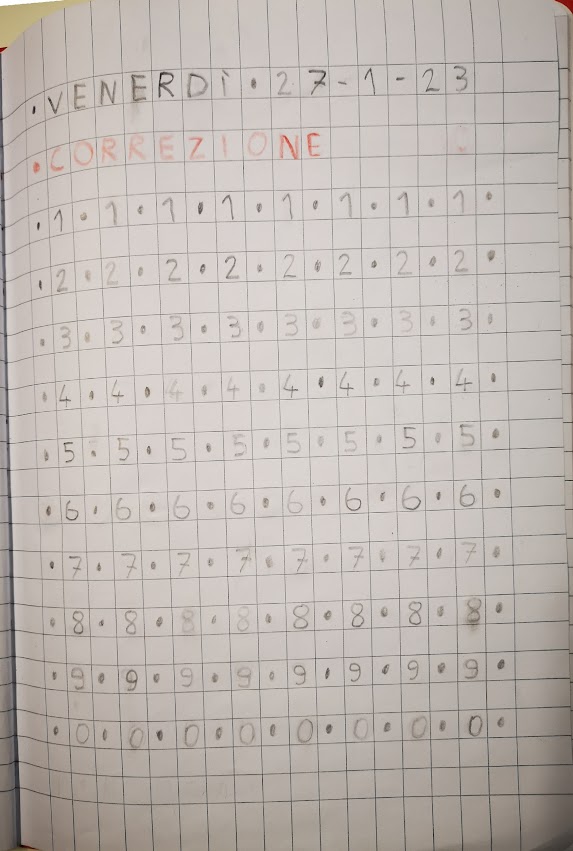 .VENERDÌ•27-1-23
•CORREZIONE
.1•1•1•1•1•1•1•1•
.2•2•2•2•2•2•2•2•
.3•3•3•3•3•3•3•3•
.4•4•4•4•4•4•4•4•
.5•5•5•5•5•5•5•5•
•6•6•6•6•6•6•6•6•
•7•7•7•7•7•7•7•7•
•8•8•8•8•8•8•8•8•
•9•9•9•9•9•9•9•9•
•0•0•0•0•0•0•0•0•